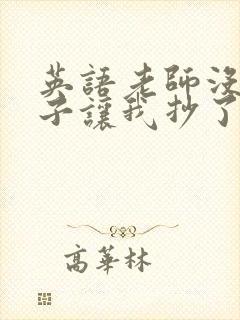 英語老師沒
子讓我抄了
高華林